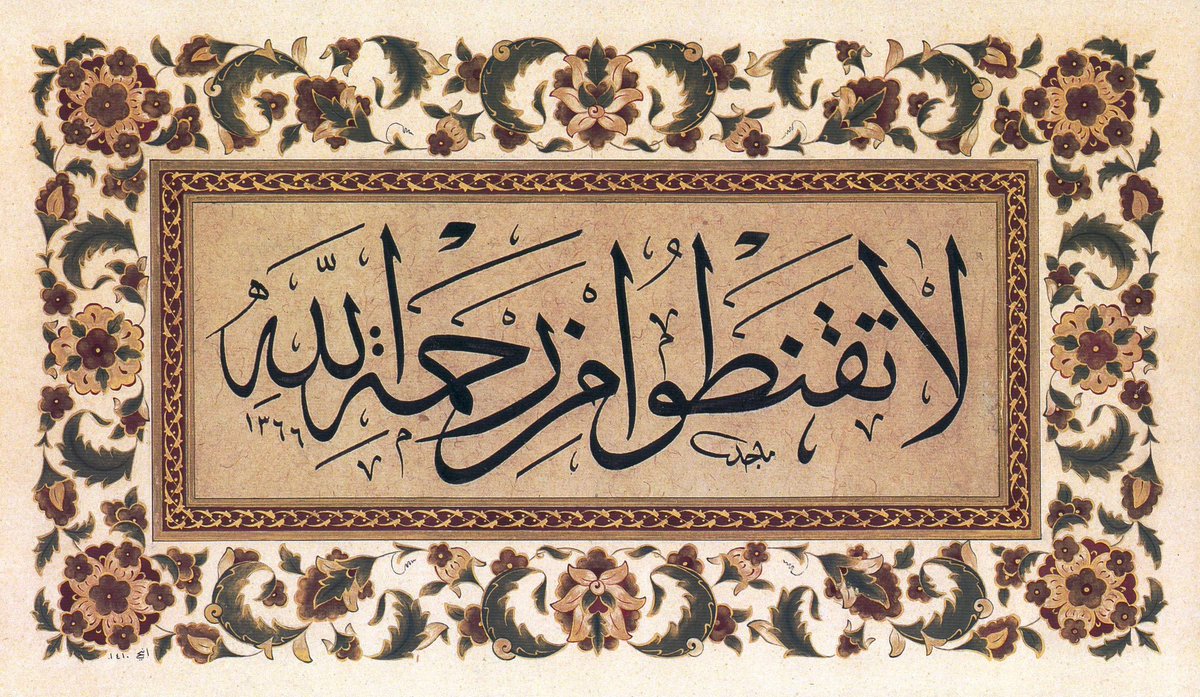 لا تقنطوا من رحمة الله
ماجد
١٣٦٦
١٤١٠